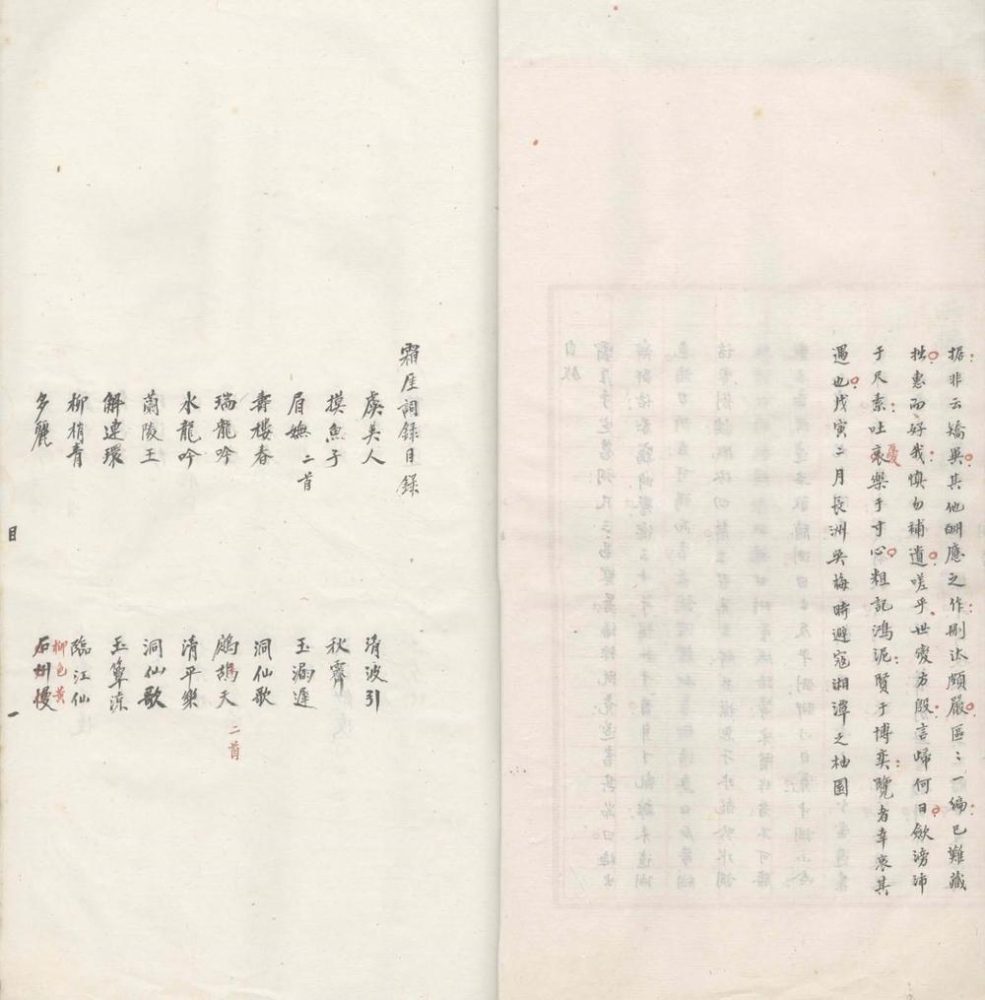 据非云矯異其他酬應之作刪汰頗嚴區二一編已難藏
拙惠而好我愼勿補遺嗟乎世變方殷言歸何日斂滂沛
于尺素吐哀樂于寸心粗記鴻泥賢于博奕覽者幸哀其
憂
遇也戊寅二月長洲吳梅時避寇湘潭之柚園
霜厓詞錄目錄
虞美人 清波引
摸魚子 秋霽
眉嫵二首 玉漏遲
壽樓春 洞仙歌
瑞龍吟 鷓鴣天二首
水龍吟 清平樂
蘭陵王 洞仙歌
解連環 玉簟涼
柳梢青 臨江仙
柳色黃
多麗 石州慢
目 一